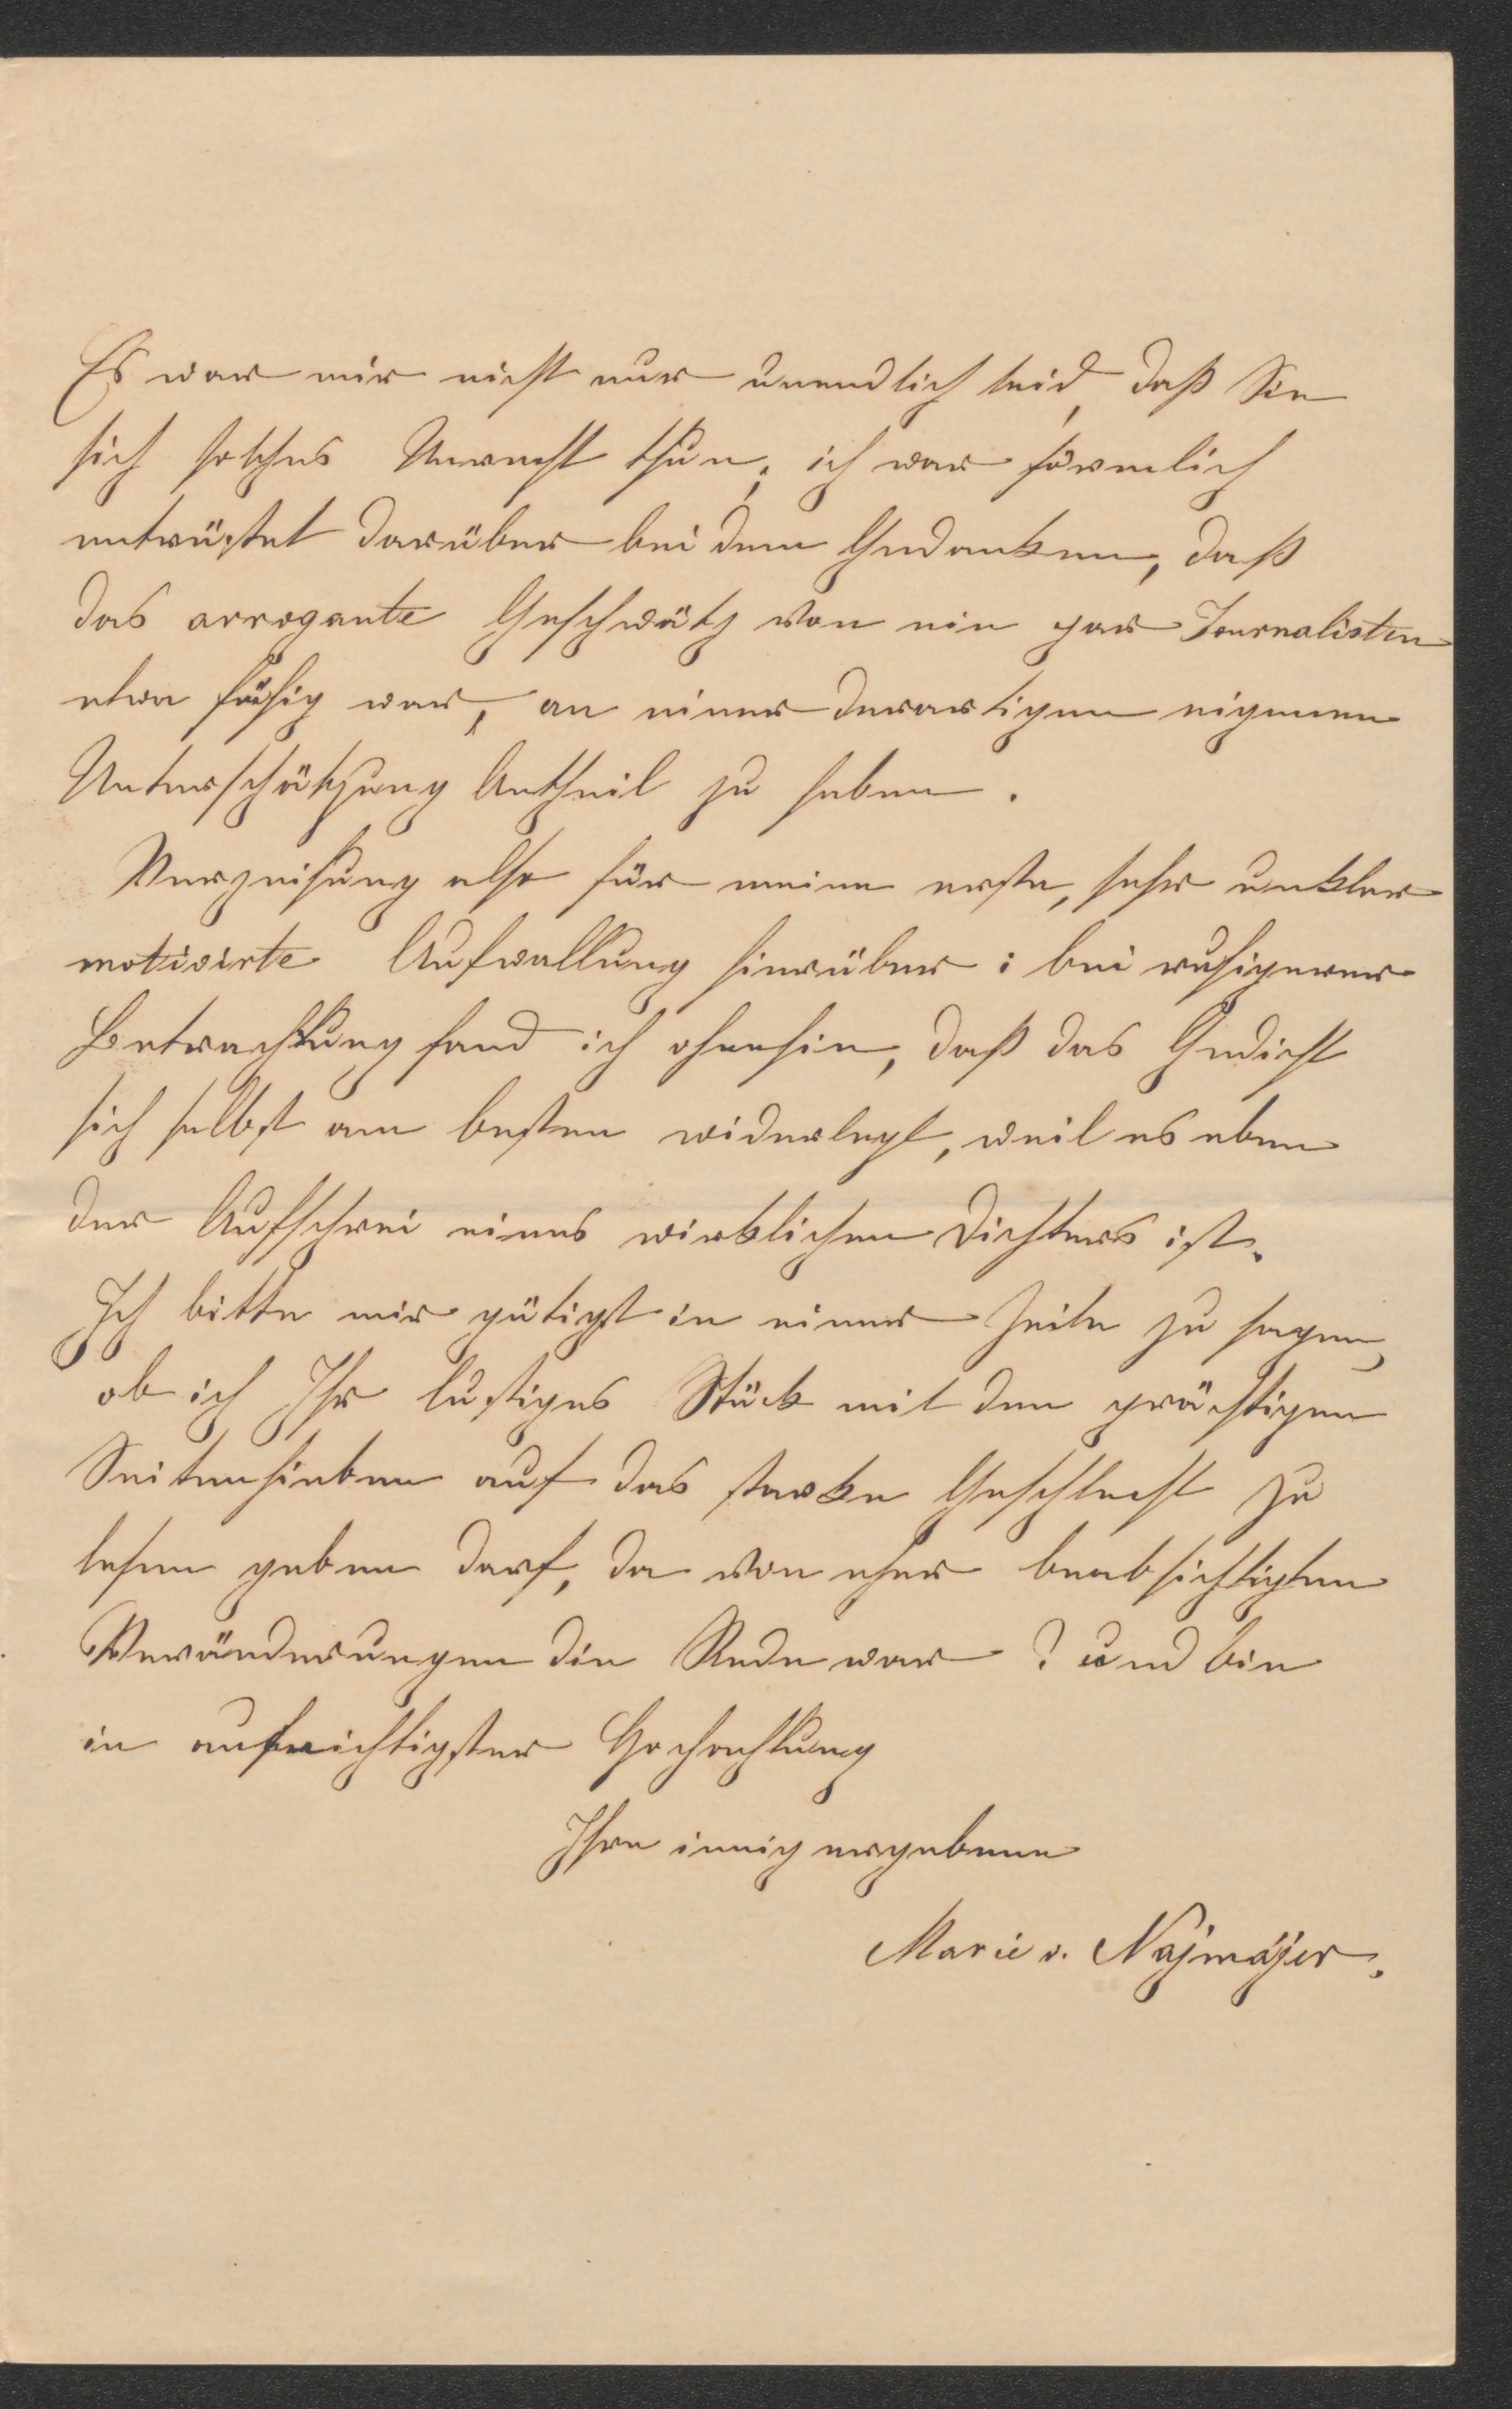 Es war mir nicht nur unendlich leid, daß Sie
sich solches Unrecht thun; ich war förmlich
entrüstet darüber bei dem Gedanken, daß
das arrogante Geschwätz von ein par Journalisten
etwa fähig war, an einer derartigen eigenen
Unterschätzung Antheil zu haben.
Verzeihung also für meine erste, sehr unklar
motivirte Aufwallung hierüber: bei ruhigerer
Betrachtung fand ich ohnehin, daß das Gedicht
sich selbst am besten widerlegt, weil es eben
der Aufschrei eines wirklichen Dichters ist.
Ich bitte mir gütigst in einer Zeile zu sagen,
ob ich Ihr lustiges Stück mit den prächtigen
Seitenhieben auf das starke Geschlecht zu
lesen geben darf, da von eher beabsichtigten
Veränderungen die Rede war? und bin
in aufrichtigster Hochachtung
Ihre innig ergebene
Marie v. Najmájer.